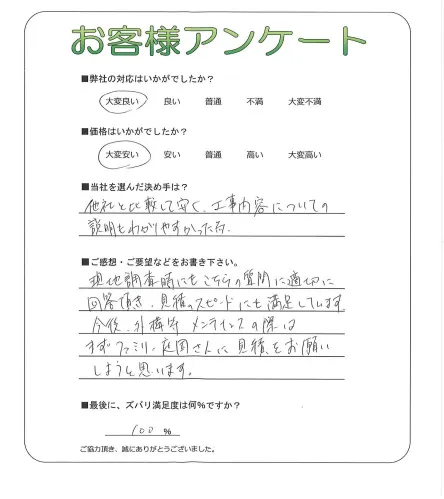 お客様アンケート
■弊社の対応はいかがでしたか？
大変良い 良い 普通 不満 大変不満
■価格はいかがでしたか？
大変安い 安い 普通 高い 大変高い
■当社を選んだ決め手は？
他社と比較して安く、工事内容についての
説明もわかりやすかった為.
■ご感想・ご要望などをお書き下さい。
現地調査時にもこちらの質問に適切に
回答頂き、見積のスピードにも満足しています
今後、外構等 メンテナンスの際は
まずファミリー庭園さんに見積をお願い
しようと思います。
■最後に、ズバリ満足度は何％ですか？
100 ％
ご協力頂き、誠にありがとうございました。